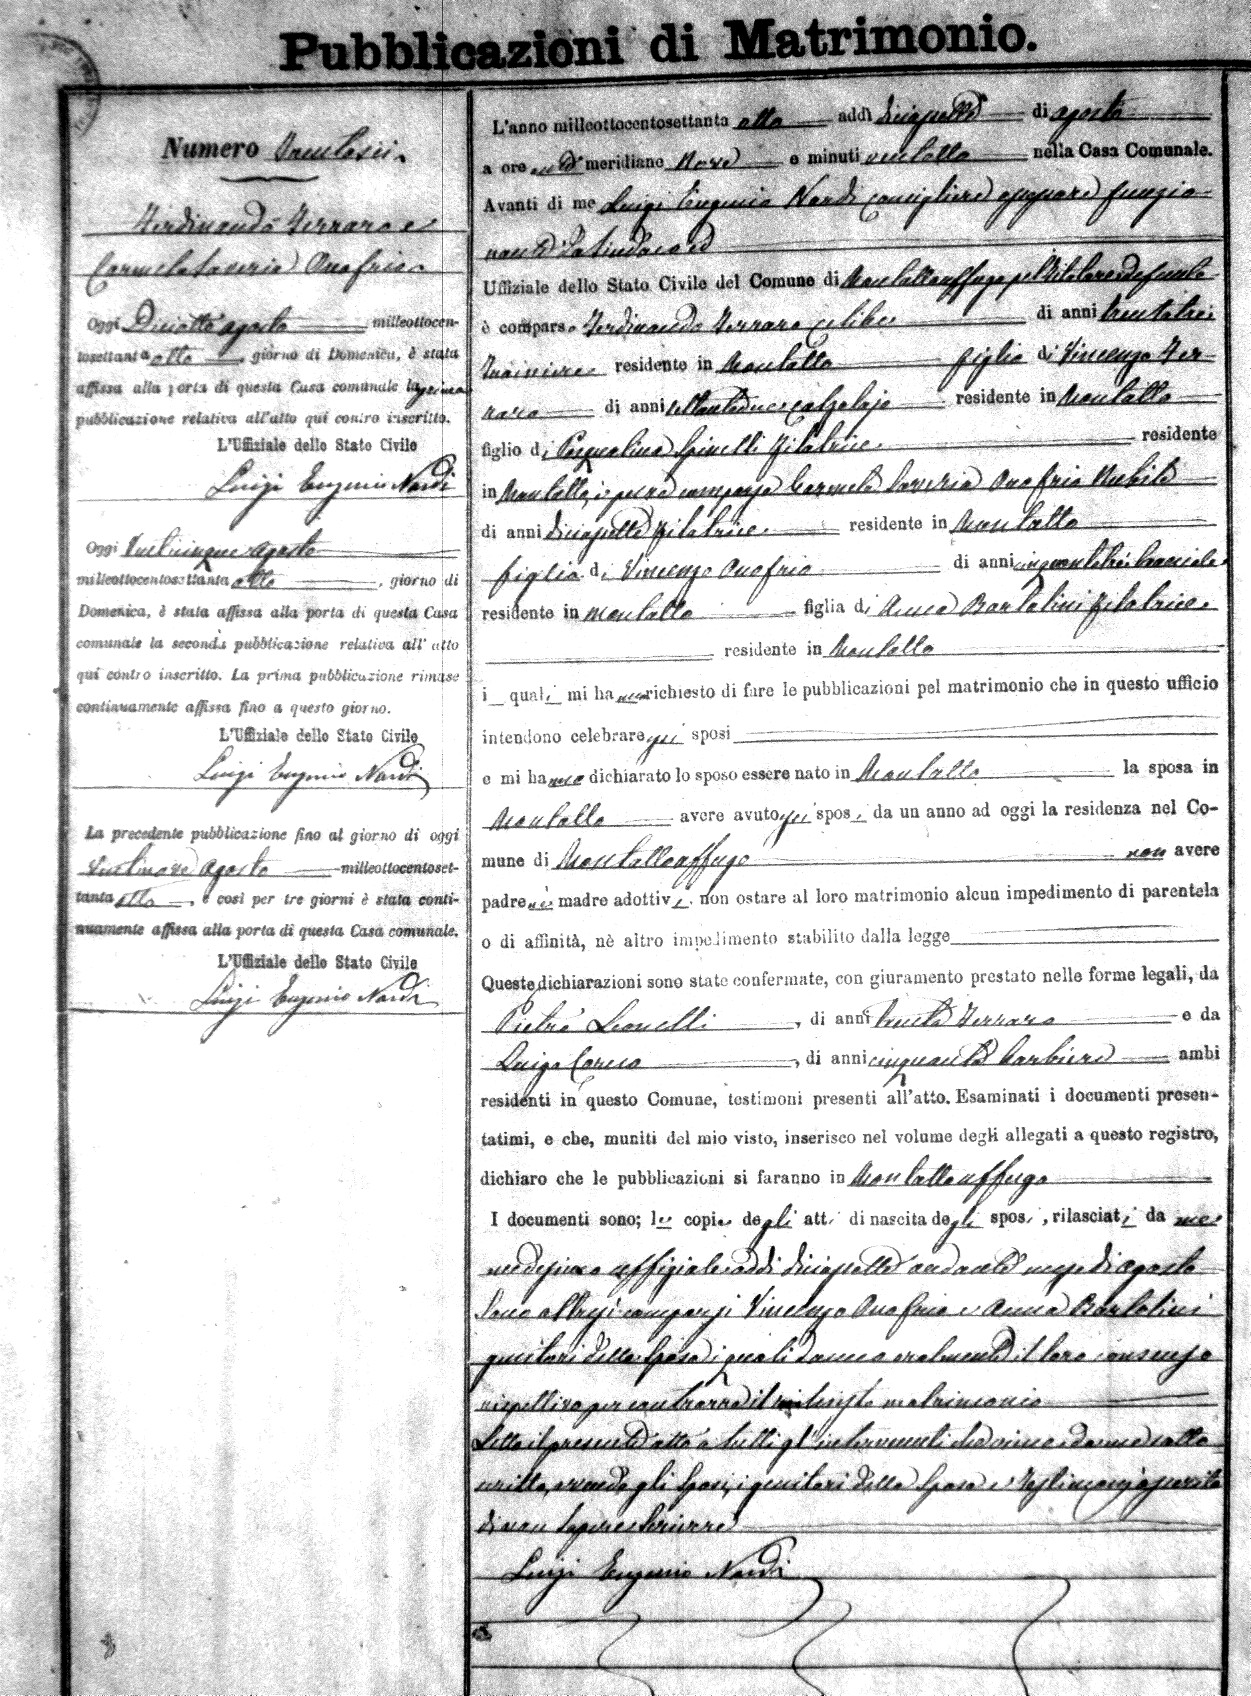 Pubblicazioni di Matrimonio.
Numero Trentasei
Ferdinando Ferraro e
Carmela Saveria Onofrio
Oggi Diciotto agosto milleottocen-
tosettanta otto, giorno di Domenica, è stata
affissa alla porta di questa Casa comunale la prima
pubblicazione relativa all'atto qui contro inscritto.
L'Uffiziale dello Stato Civile
Luigi Eugenio Nardi
Oggi Venticinque agosto
milleottocentosettanta otto, giorno di
Domenica, è stata affissa alla porta di questa Casa
comunale la seconda pubblicazione relativa all'atto
qui contro inscritto. La prima pubblicazione rimase
continuamente affissa fino a questo giorno.
L'Uffiziale dello Stato Civile
Luigi Eugenio Nardi
La precedente pubblicazione fino al giorno di oggi
Ventinove agosto milleottocentoset-
tanta otto, e così per tre giorni è stata conti-
nuamente affissa alla porta di questa Casa comunale.
L'Uffiziale dello Stato Civile
Luigi Eugenio Nardi
L'anno milleottocentosettanta otto addì diciassette di agosto
a ore anti meridiane Nove e minuti ventotto nella Casa Comunale.
Avanti di me Luigi Eugenio Nardi Consigliere assessore funzio
nante da Sindaco ed
Uffiziale dello Stato Civile del Comune di Montaltouffugo pel titolare defunto
è comparso Ferdinando Ferraro celibe di anni trentatrè
residente in Montalto figlio di Vincenzo Fer
raro di anni settantadue calzolajo residente in Montalto
figlio di Pasqualina Spinelli filatrice residente
in Montalto, i è pure comparsa Carmela Saveria Onofrio Nubile
di anni diciassette filatrice residente in Montalto
figlia di Vincenzo Onofrio di anni cinquantatrè bracciale
residente in Montalto figlia di Anna Bartolini filatrice
residente in Montalto
i quali mi hanno richiesto di fare le pubblicazioni pel matrimonio che in questo ufficio
intendono celebrare gli sposi
e mi hanno dichiarato lo sposo essere nato in Montalto la sposa in
Montalto avere avuto gli sposi da un anno ad oggi la residenza nel Co-
mune di Montaltouffugo non avere
padre nè madre adottivi, non ostare al loro matrimonio alcun impedimento di parentela
o di affinità, nè altro impedimento stabilito dalla legge
Queste dichiarazioni sono state confermate, con giuramento prestato nelle forme legali, da
Pietro Leonelli, di anni trenta Ferraro e da
Luigi Caruso, di anni cinquanta barbiere ambi
residenti in questo Comune, testimoni presenti all'atto. Esaminati i documenti presen-
tatimi, e che, muniti del mio visto, inserisco nel volume degli allegati a questo registro,
dichiaro che le pubblicazioni si faranno in Montaltouffugo
I documenti sono; le copie degli atti di nascita degli sposi, rilasciati da me
medesimo uffiziale addì diciassette andante mese di agosto
Sono altresì comparsi Vincenzo Onofrio e Anna Bartolini
genitori della Sposa i quali danno oralmente il loro consenso
rispettivo per contrarre il matrimonio
Letto il presente atto a tutti gl'intervenuti che viene da me sotto
scritto, avendo gli Sposi, i genitori della Sposa e Testimonj asserito
di non sapere scrivere
Luigi Eugenio Nardi